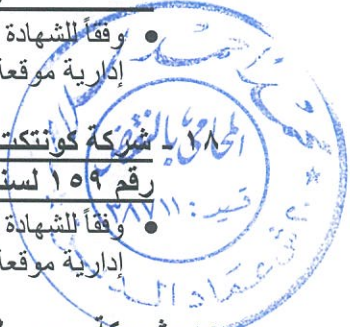 • وفقاً للشهادة
إدارية موقعة
١٨ - شركة كونتكت
رقم ١٥٩ لسنة
• وفقاً للشهادة
إدارية موقعة
المحامى بالنقض
قيد: ٣٨٧١١
عماد الدين